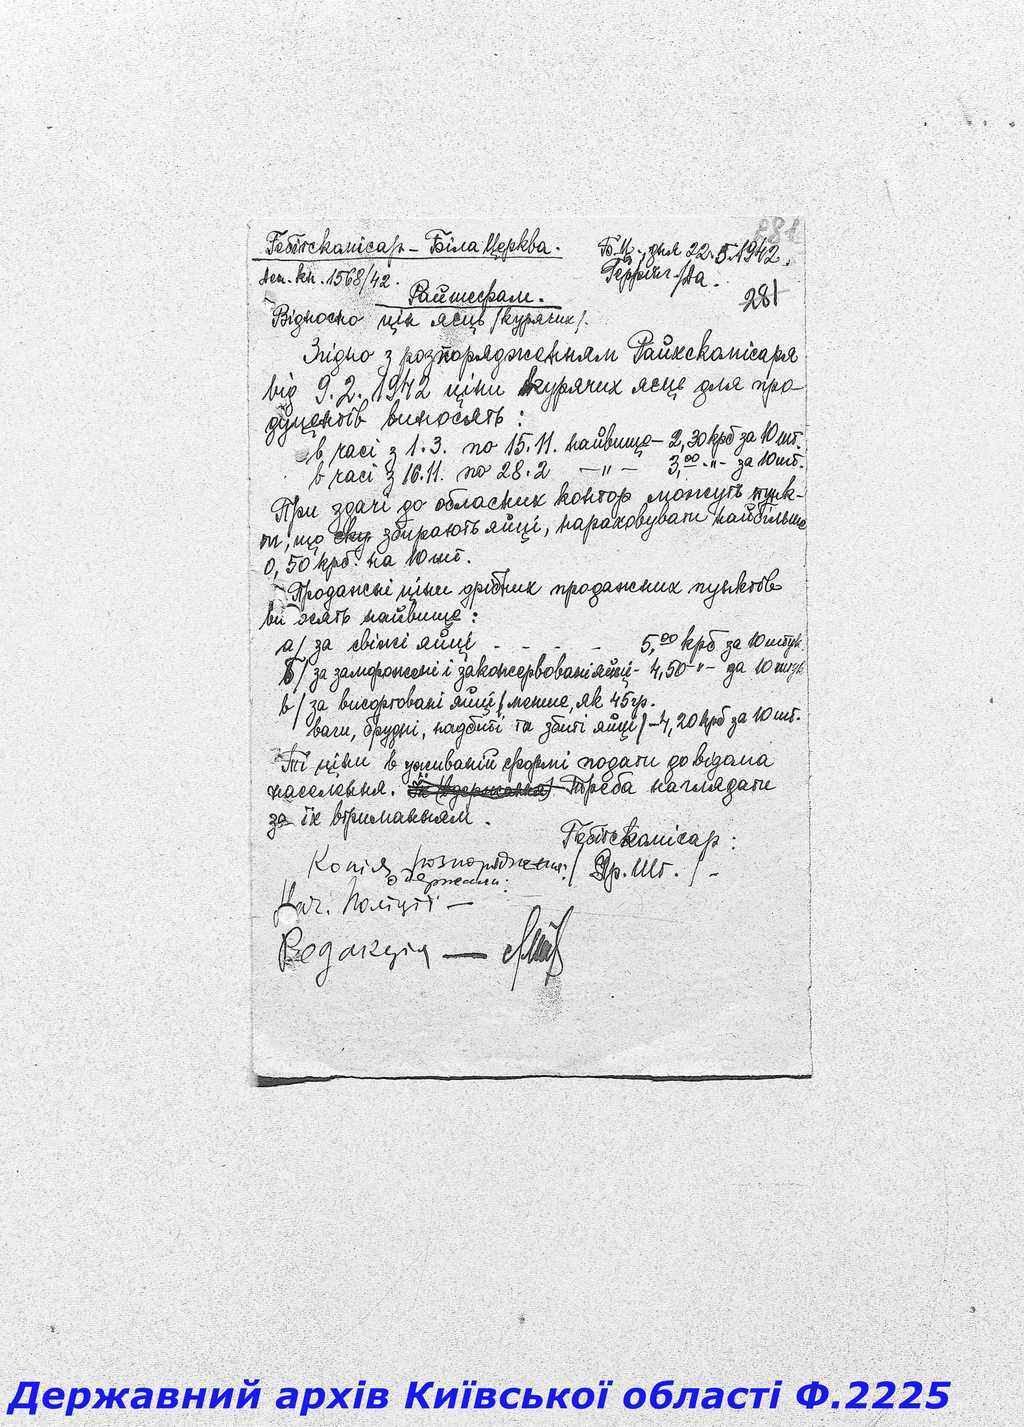 281
Гебітскомісар – Біла Церква.
Б.Ц., дня 22.5.1942.
кн. 1568/42.
281
Райшефам.
Відносно цін яєць /курячих/.
Згідно з розпорядженням Райхскомісаря
від 9.2.1942 ціни курячих яєць для про-
дуцентів виносять:
в часі з 1.3. по 15.11. найвище – 2,30 крб за 10 шт.
в часі з 16.11. по 28.2 – " – 3,00 - " - за 10 шт.
При здачі до обласних контор можуть пунк-
ти, що збирають яйці, нараховувати найбільше
0,50 крб. на 10 шт.
Продажні ціни дрібних продажних пунктів
ви сять найвище:
а/ за свіжі яйці - - - - 5,00 крб за 10 штук
б/ за заморожені і законсервовані яйці - 4,50 - " - за 10 штук
в/ за висортовані яйці / менше, як 45 гр.
ваги, брудні, надбиті та збиті яйці / – 4,20 крб за 10 шт.
Ті ціни в уживаній формі подати до відома
населення. Треба наглядати
за їх втриманням.
Гебітскомісар:
/ Др. Шт. / -
Копія розпорядження
одержали:
Нач. Поліції —
Редакція —
Державний архів Київської області Ф.2225